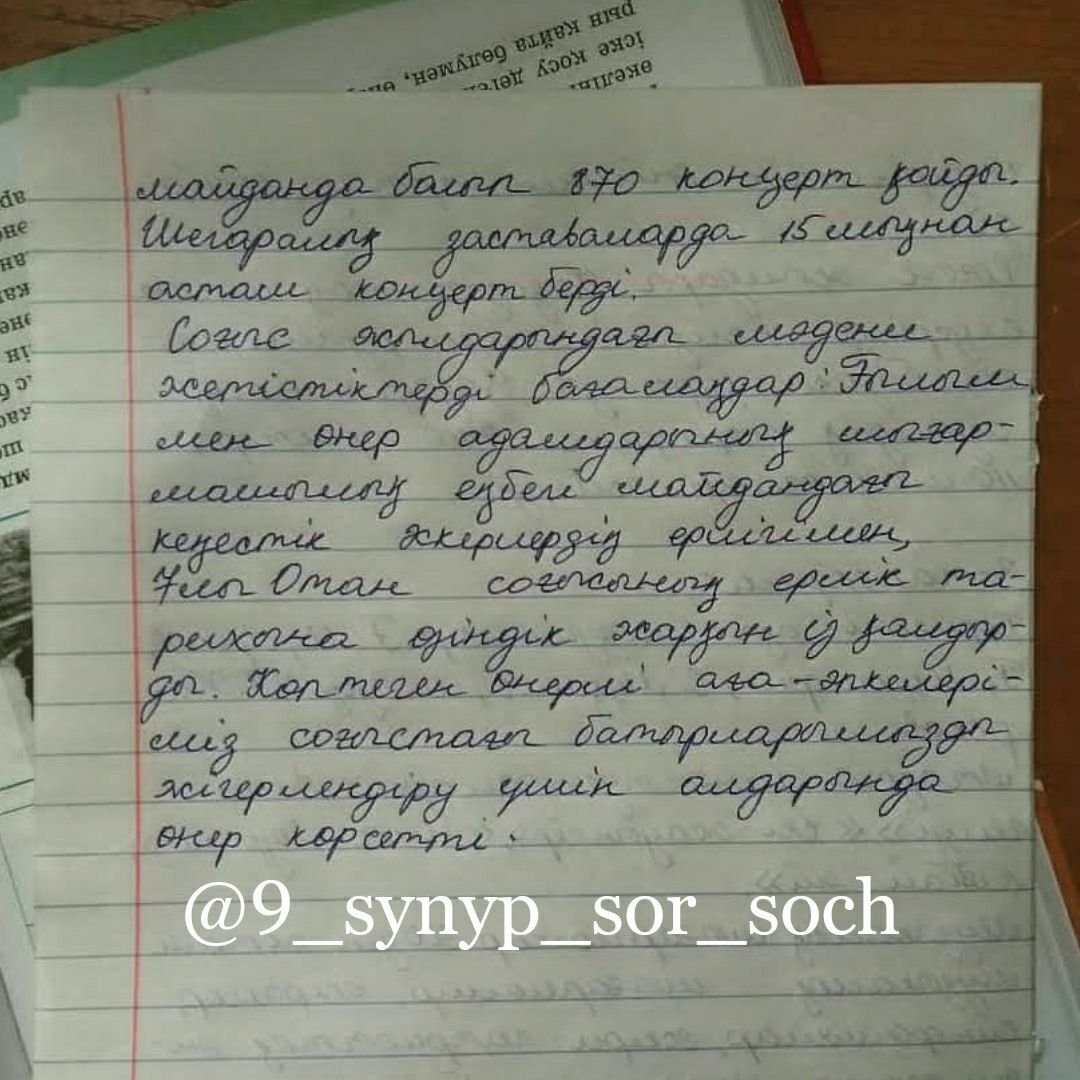 рын қайта бөлумен,
іске қосу
әкеліні
майданда болып 870 концерт қойды.
Шегаралық заставаларда 15 мыңнан
астам концерт берді.
Соғыс жылдарындағы мәдени
жетістіктерді бағалаңдар: Ғылым
мен өнер адамдарының шығар-
машылық еңбегі майдандағы
кеңестік әкерлердің ерлігімен,
Ұлы Отан соғысының ерлік та-
рихына өзіндік жарқын із қалдыр-
ды. Көптеген өнерлі аға-әпкелері-
міз соғыстағы батырларымызды
жігерлендіру үшін алдарында
өнер көрсетті.
@9_synyp_sor_soch